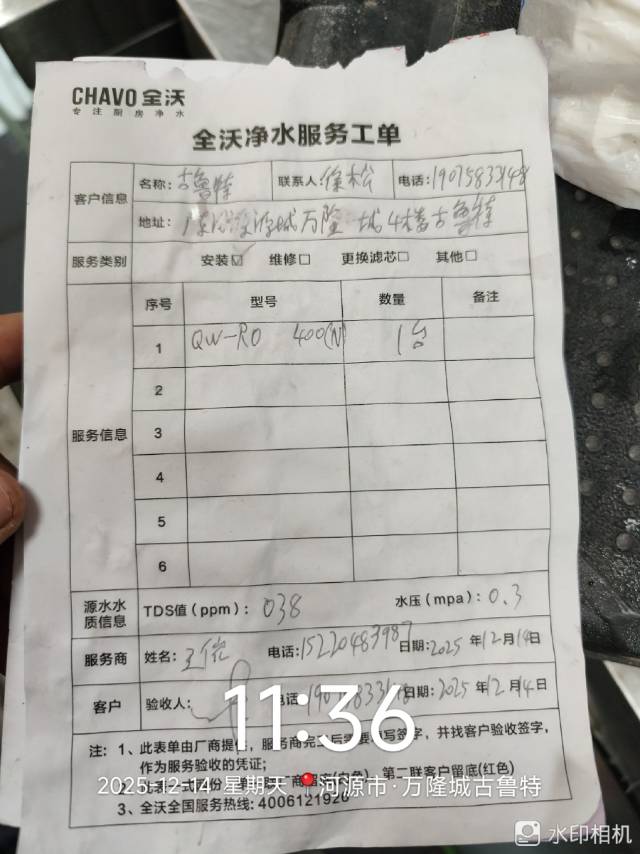 CHAVO 全沃
专注厨房净水
全沃净水服务工单
客户信息
名称：古鲁特 联系人：徐松 电话：19075833148
地址： 源城万隆城4楼古鲁特
服务类别 安装☑ 维修□ 更换滤芯□ 其他□
服务信息
序号 型号 数量 备注
1 QW-RO 400(N) 1台
2
3
4
5
6
源水水质信息 TDS值（ppm）：038 水压（mpa）：0.3
服务商 姓名：王 电话：15220483987 日期：2025年12月14日
客户 验收人： 电话 日期：2025年12月14日
注：1、此表单由厂商提 服务商完 写签字，并找客户验收签字，
作为服务验收的凭证；
2、 第二联客户留底(红色)
3、全沃全国服务热线：4006121926
11:36
2025-12-14 星期天 河源市·万隆城古鲁特
水印相机